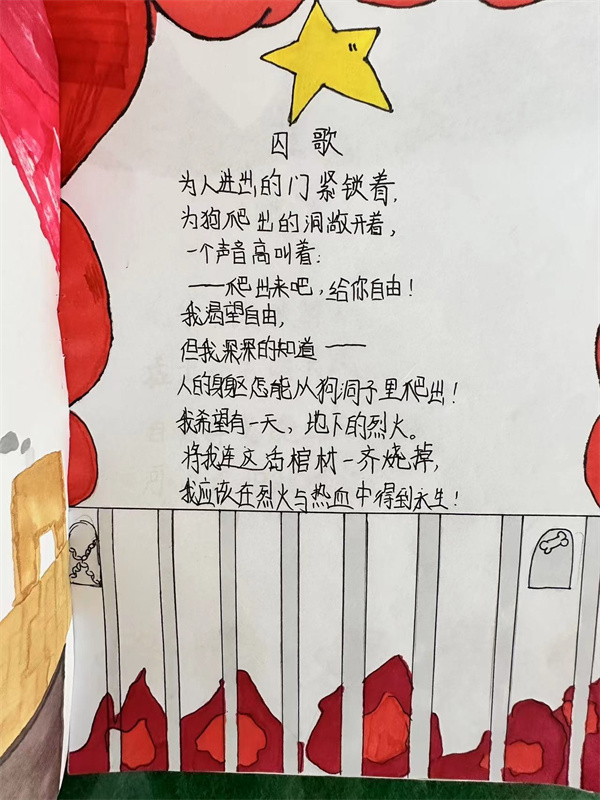 囚歌
为人进出的门紧锁着,
为狗爬出的洞敞开着,
一个声音高叫着:
——爬出来吧,给你自由!
我渴望自由,
但我深深的知道——
人的身躯怎能从狗洞子里爬出!
我希望有一天,地下的烈火。
将我连这活棺材一齐烧掉,
我应该在烈火与热血中得到永生!